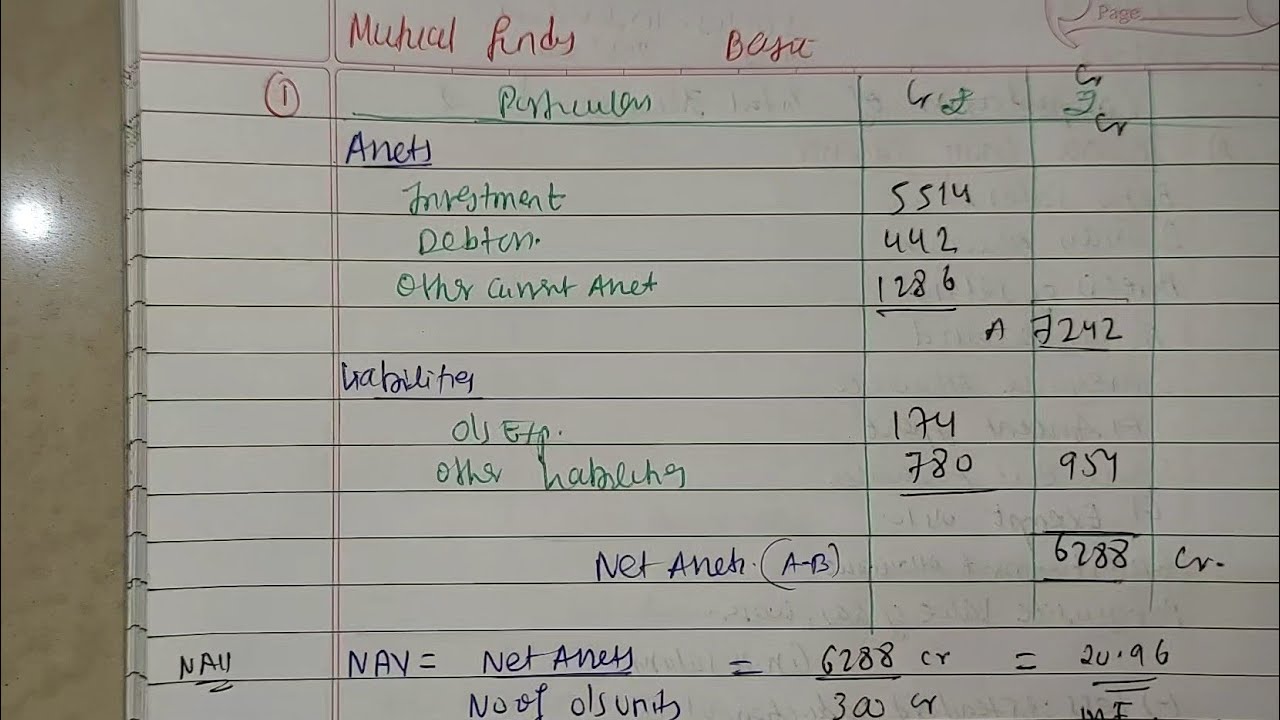 Page
Mutual funds Basic
① Particulars Cr ₹ Cr ₹ Cr
Assets
Investment 5514
Debtors. 442
Other current Asset 1286
A 7242
Liabilities
O/s Exp. 174
Other Liabilities 780 954
Net Assets. (A-B) 6288 Cr.
NAV NAV = Net Assets = 6288 cr = 20.96
No of o/s units 300 Cr in ₹